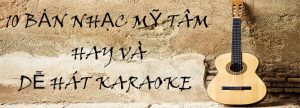 10 BẢN NHẠC MỸ TÂM
HAY VÀ
DỄ HÁT KARAOKE